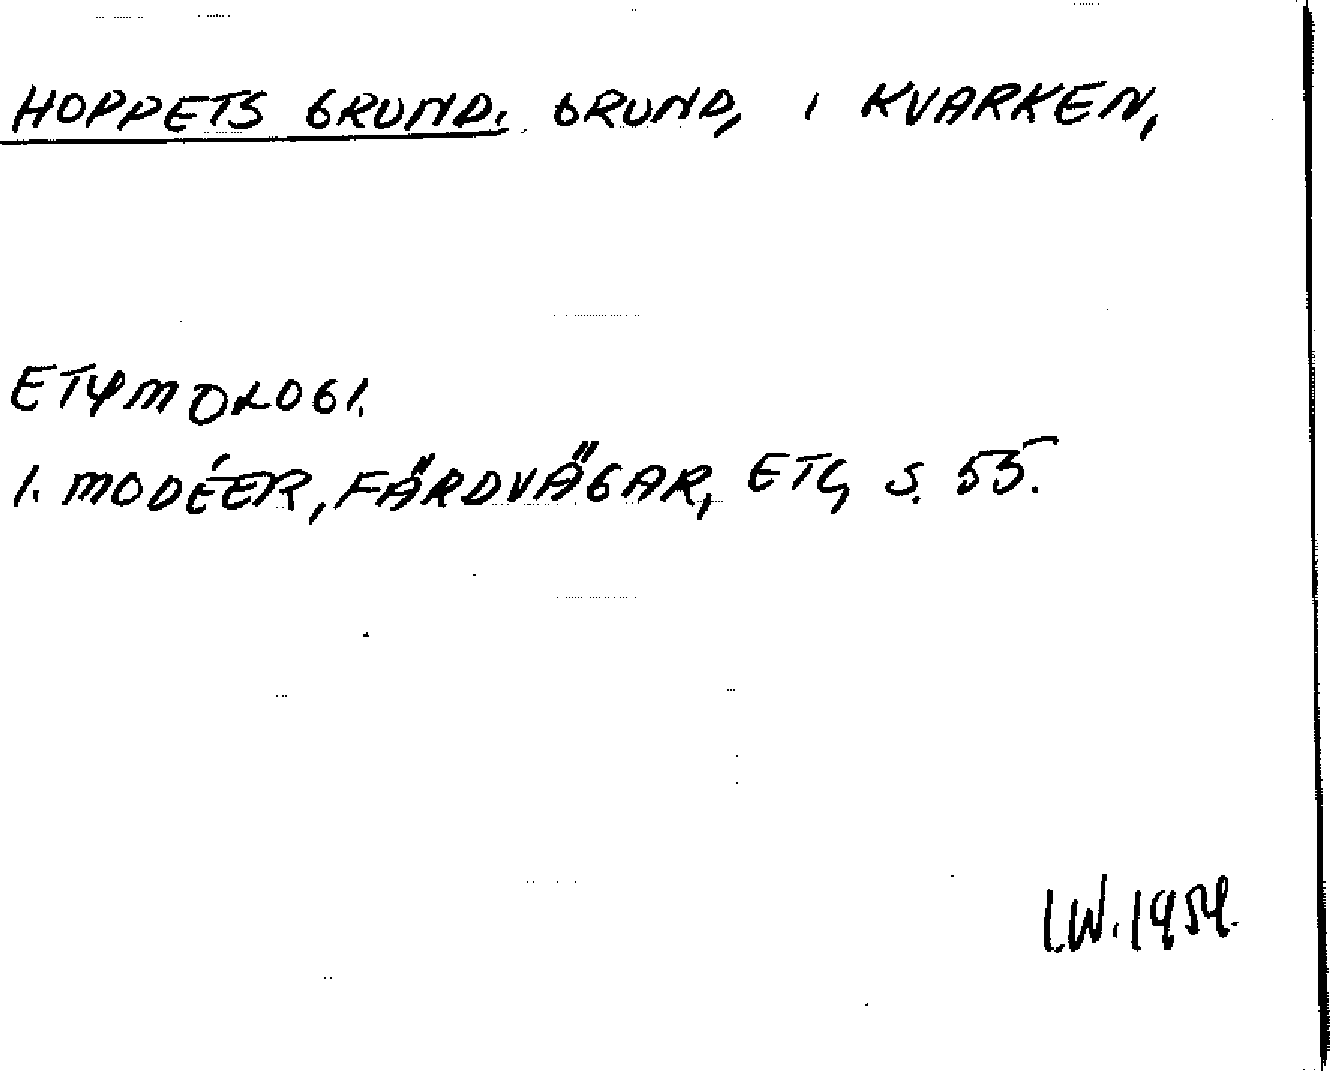 HOPPETS GRUND. GRUND, I KVARKEN,
ETYMOLOGI.
1. MODÉER, FÄRDVÄGAR, ETC, S. 55.
I.W. 1954.